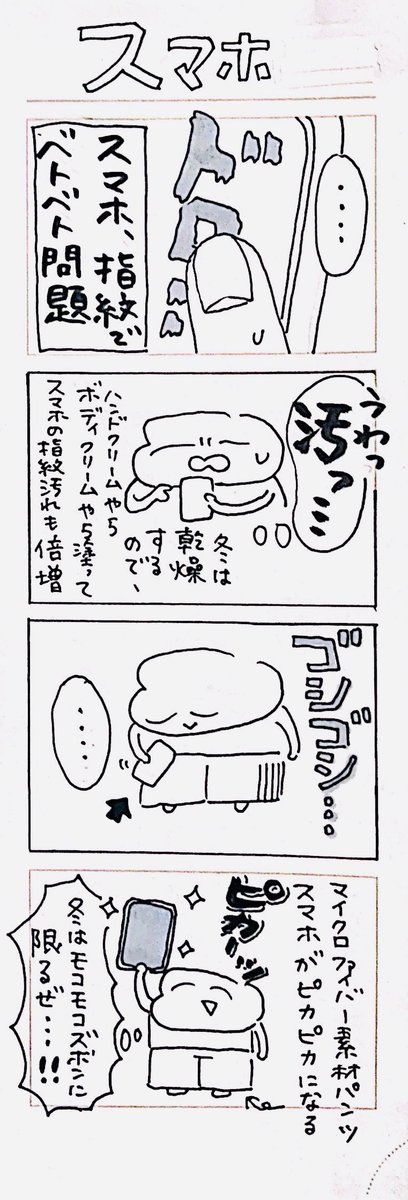 スマホ
・・・・
ドロ
スマホ、指紋で
ベトベト問題
うわっ
汚っ…
冬は
乾燥
する
ので、
ハンドクリームやら
ボディクリームやら塗って
スマホの指紋汚れも倍増
ゴシゴシ…
・・・・・
マイクロファイバー素材パンツ
スマホがピカピカになる
ピカーッ
冬はモコモコズボンに
限るぜ…!!